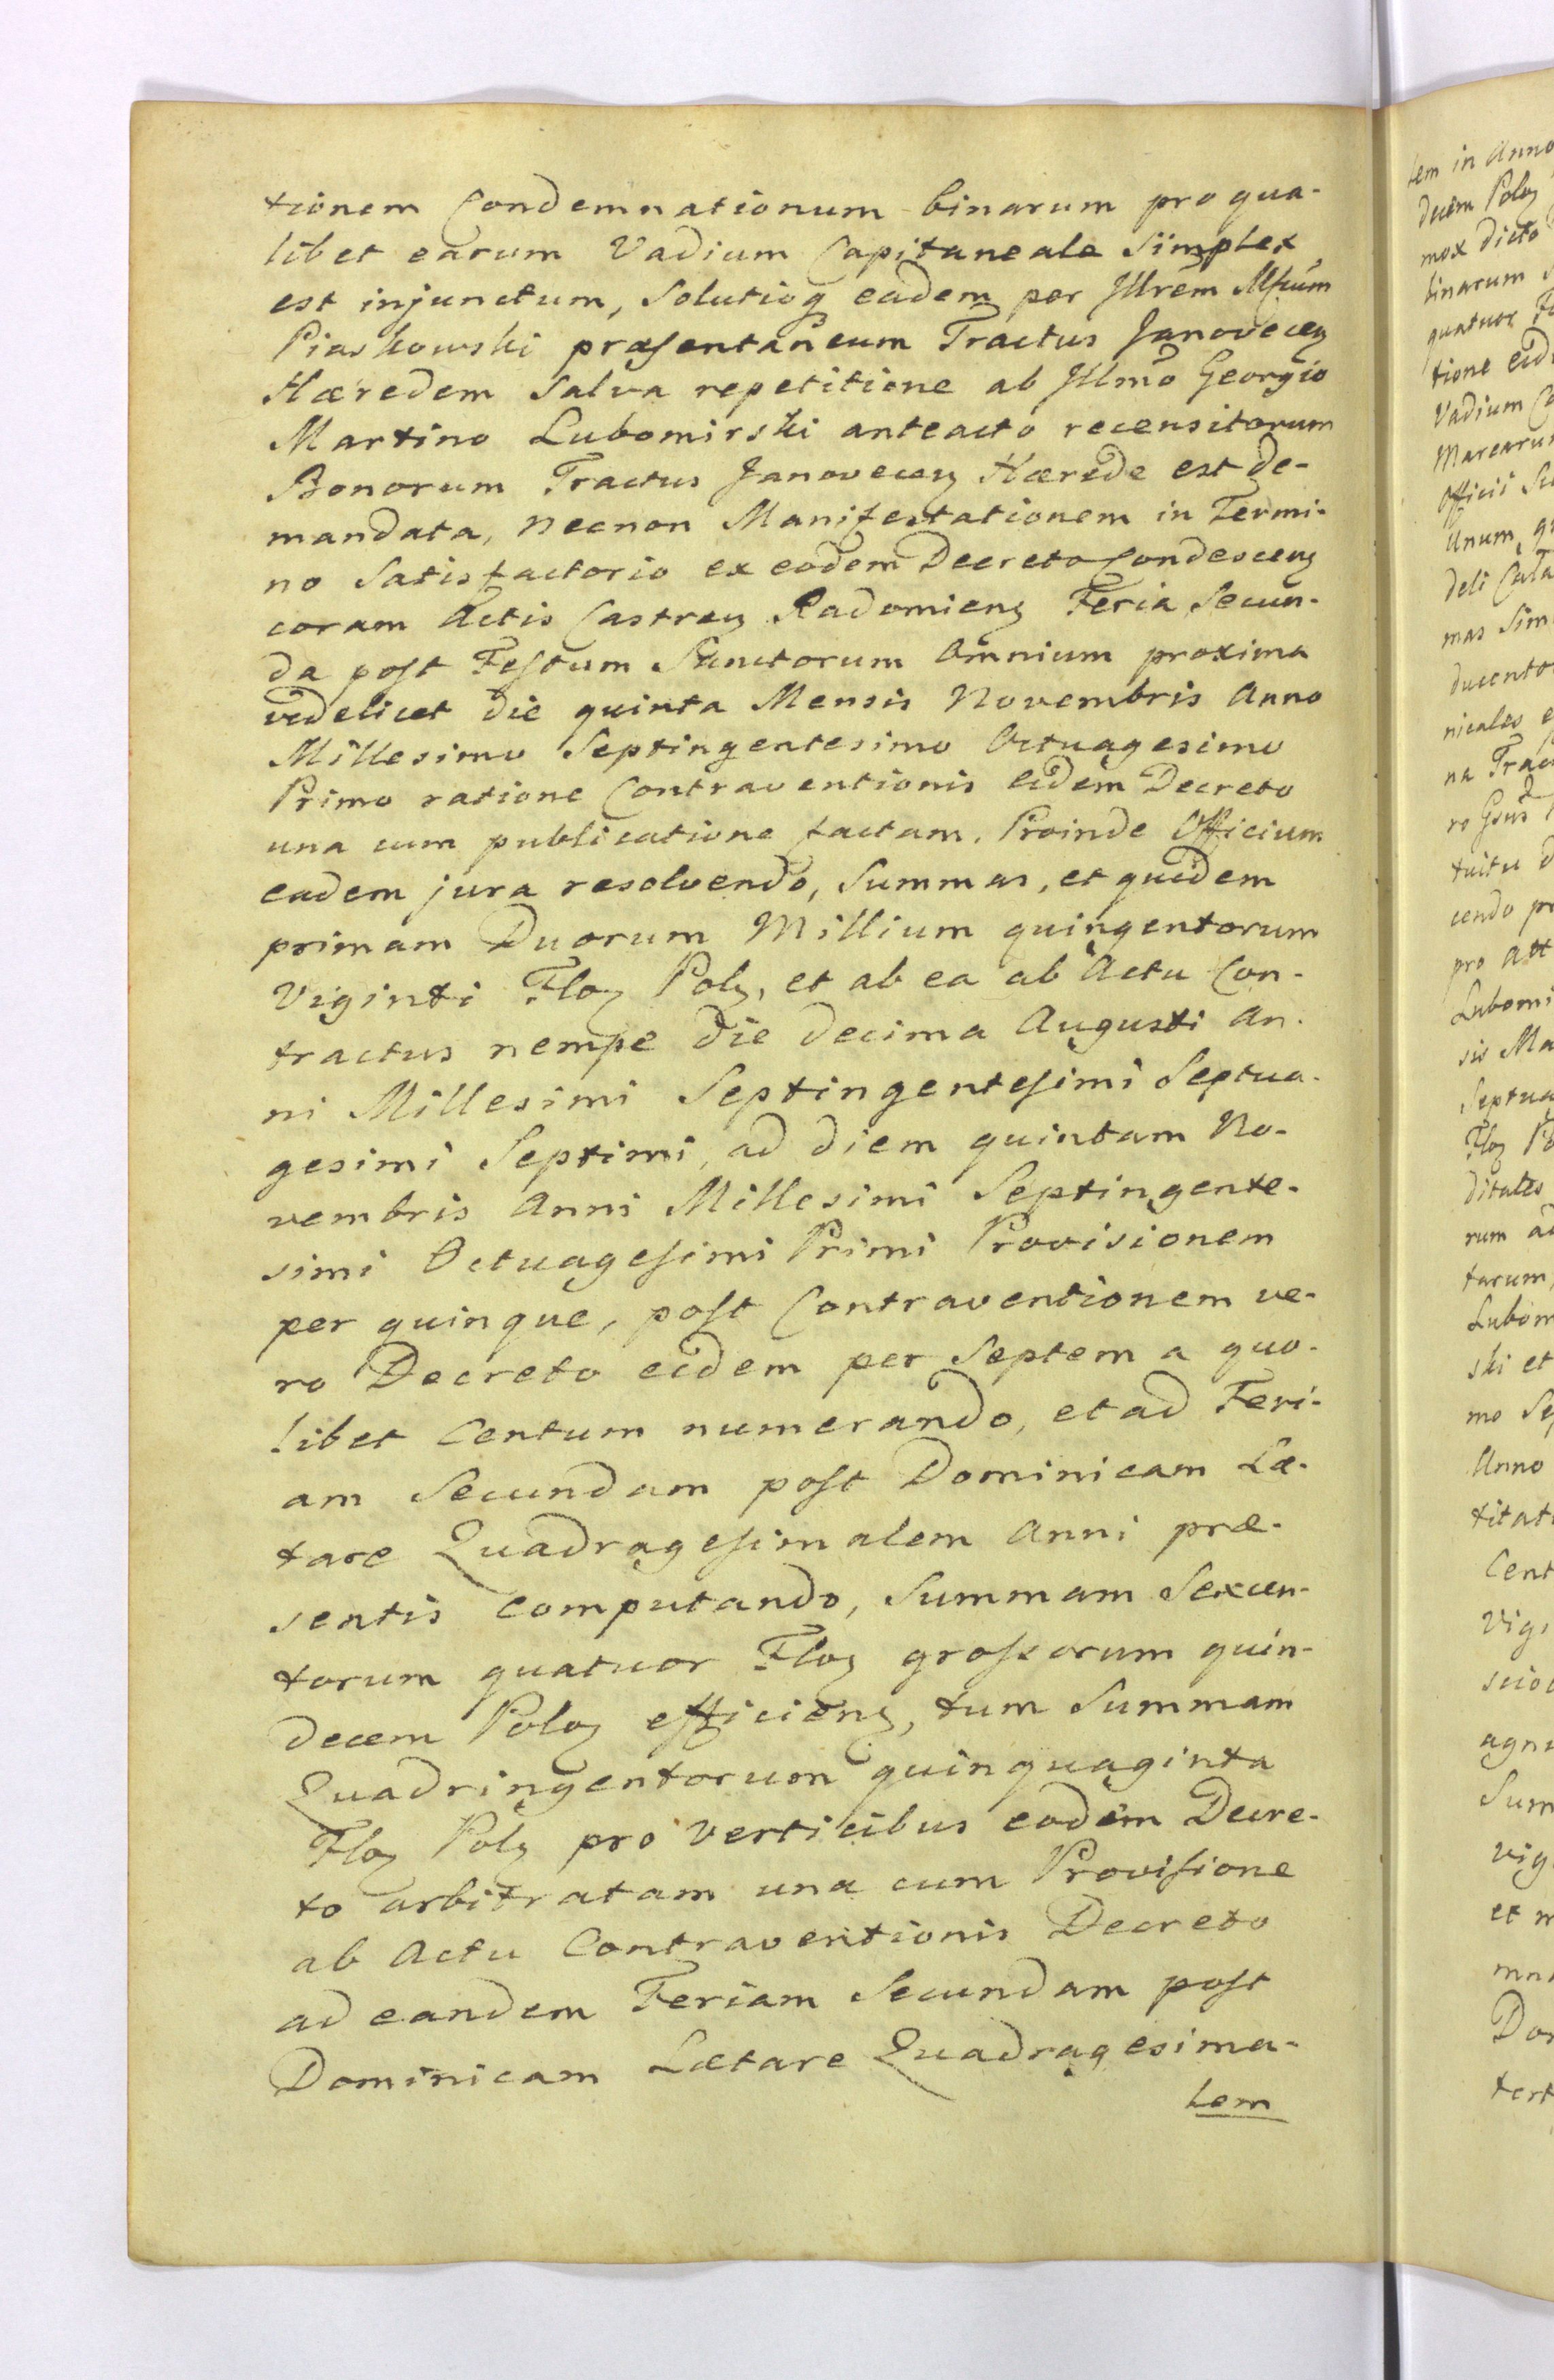 tionem Condemnationum binarum pro qua-
libet earum Vadium Capitaneale Simplex
est injunctum, Solutioq eadem per Jllrem Mſcum
Piaskowski præsentaneum Tractus Janovecen
Hæredem Salva repetitione ab Jllmo Georgio
Martino Lubomirski anteacto recensitorum
Bonorum Tractus Janovecen Hærede est de-
mandata, necnon Manifestationem in Termi-
no Satisfactorio ex eodem Decreto Condescen
coram Actis Castren Radomien Feria Secun-
da post Festum Sanctorum Omnium proxima
videlicet die quinta Mensis Novembris Anno
Millesimo Septingentesimo Octuagesimo
Primo ratione Contraventionis eidem Decreto
una cum publicatione factam. Proinde Officium
eadem jura resolvendo, Summas, et quidem
primam Duorum Millium quingentorum
Viginti Flor Pol, et ab ea ab Actu Con-
tractus nempe die decima Augusti An-
ni Millesimi Septingentesimi Septua-
gesimi Septimi, ad diem quintam No-
vembris Anni Millesimi Septingente-
simi Octuagesimi Primi Provisionem
per quinque, post Contraventionem ve-
ro Decreto eidem per Septem a quo-
libet Centum numerando, et ad Feri-
am Secundam post Dominicam Læ-
tare Quadragesimalem Anni præ-
sentis computando, Summam Sexcen-
torum quatuor Flor grossorum quin-
decem Polo efficien, tum Summam
Quadringentorum quinquaginta
Flor Pol pro verticibus eodem Decre-
to arbitratam una cum Provisione
ab Actu Contraventionis Decreto
ad eandem Feriam Secundam post
Dominicam Lætare Quadragesima-
lem